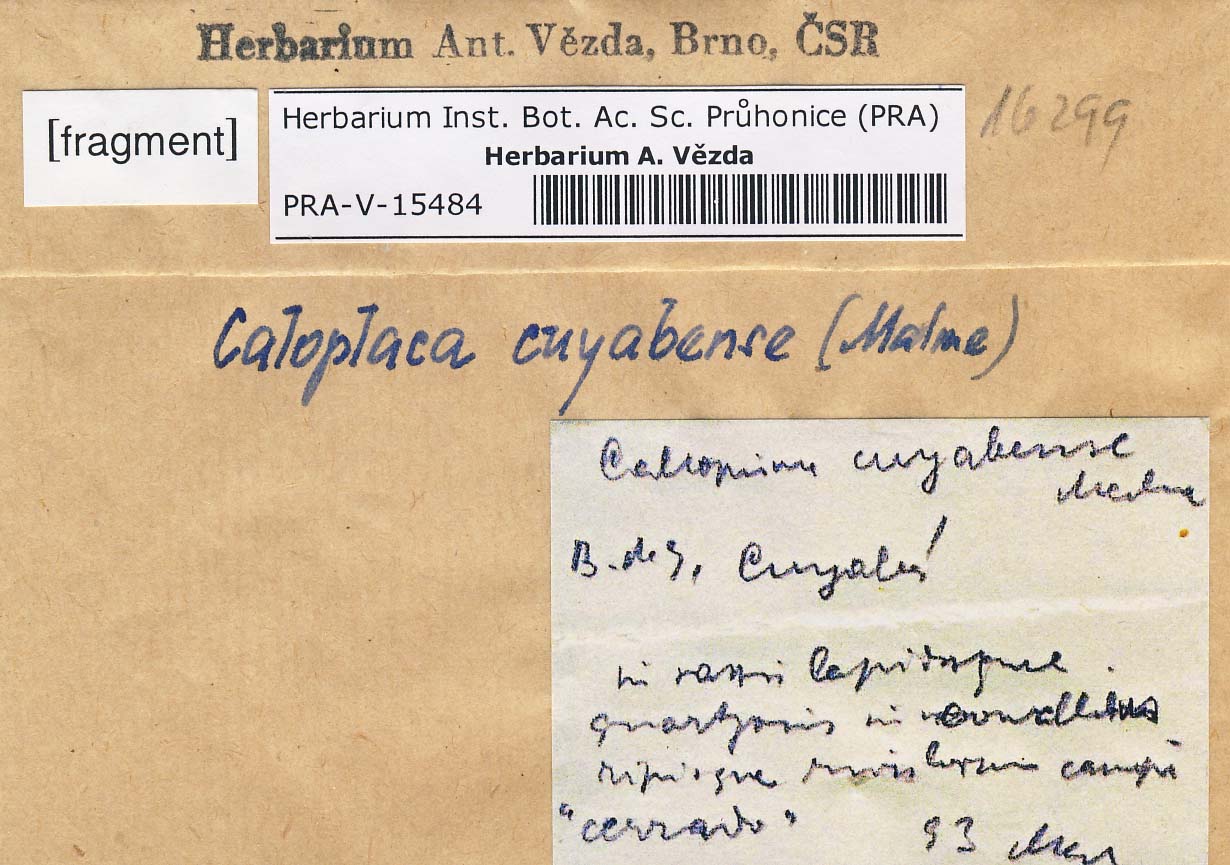 Herbarium Ant. Vězda, Brno, ČSR
[fragment]
Herbarium Inst. Bot. Ac. Sc. Průhonice (PRA)
Herbarium A. Vězda
PRA-V-15484
16299
Caloplaca cuyabense (Malme)
cuyabense
Malme
Cuyabá
in saxis lapidisque
quartzosis in
ripisque campi
"cerrado" 93